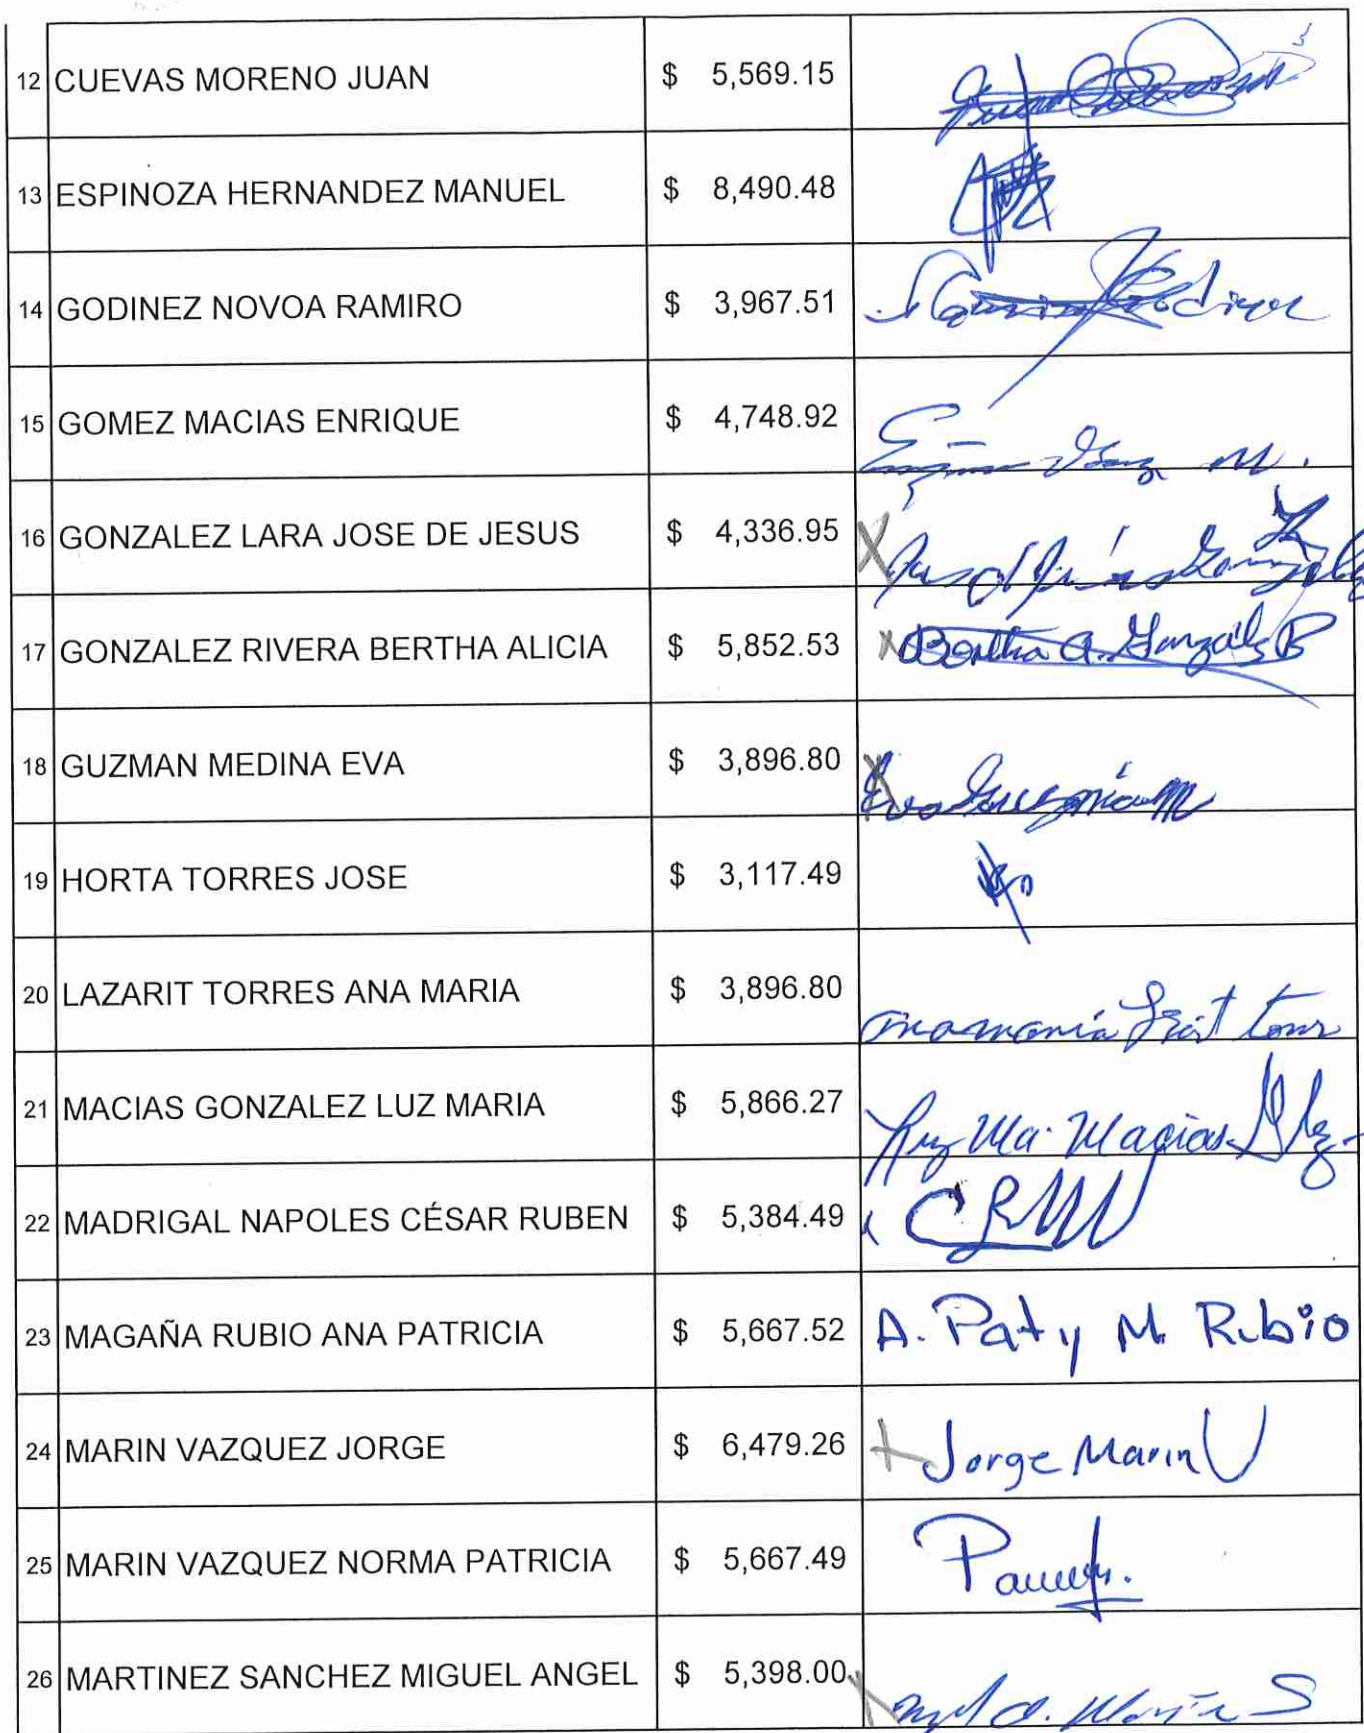 12 CUEVAS MORENO JUAN $ 5,569.15
13 ESPINOZA HERNANDEZ MANUEL $ 8,490.48
14 GODINEZ NOVOA RAMIRO $ 3,967.51
15 GOMEZ MACIAS ENRIQUE $ 4,748.92
16 GONZALEZ LARA JOSE DE JESUS $ 4,336.95
17 GONZALEZ RIVERA BERTHA ALICIA $ 5,852.53 Bertha A.
18 GUZMAN MEDINA EVA $ 3,896.80 Eva Guzmán M
19 HORTA TORRES JOSE $ 3,117.49
20 LAZARIT TORRES ANA MARIA $ 3,896.80
21 MACIAS GONZALEZ LUZ MARIA $ 5,866.27 Luz Ma. Macias Glez.
22 MADRIGAL NAPOLES CÉSAR RUBEN $ 5,384.49 CRM
23 MAGAÑA RUBIO ANA PATRICIA $ 5,667.52 A. Paty M. Rubio
24 MARIN VAZQUEZ JORGE $ 6,479.26 Jorge Marin V
25 MARIN VAZQUEZ NORMA PATRICIA $ 5,667.49
26 MARTINEZ SANCHEZ MIGUEL ANGEL $ 5,398.00